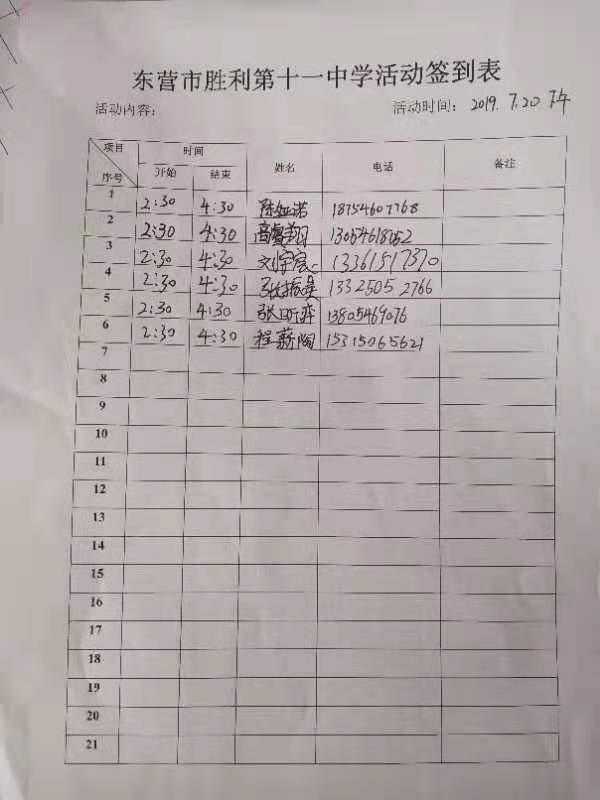 东营市胜利第十一中学活动签到表
活动内容：
活动时间：2019.7.20 下午
项目 时间 姓名 电话 备注
序号 开始 结束
1 2:30 4:30 陈娅诺 18754607768
2 2:30 4:30 高 翔 13054618
3 2:30 4:30 刘宇宸 13361517370
4 2:30 4:30 张振昊 13325052766
5 2:30 4:30 张昕弈 13805469076
6 2:30 4:30 程薪陶 15315065621
7
8
9
10
11
12
13
14
15
16
17
18
19
20
21